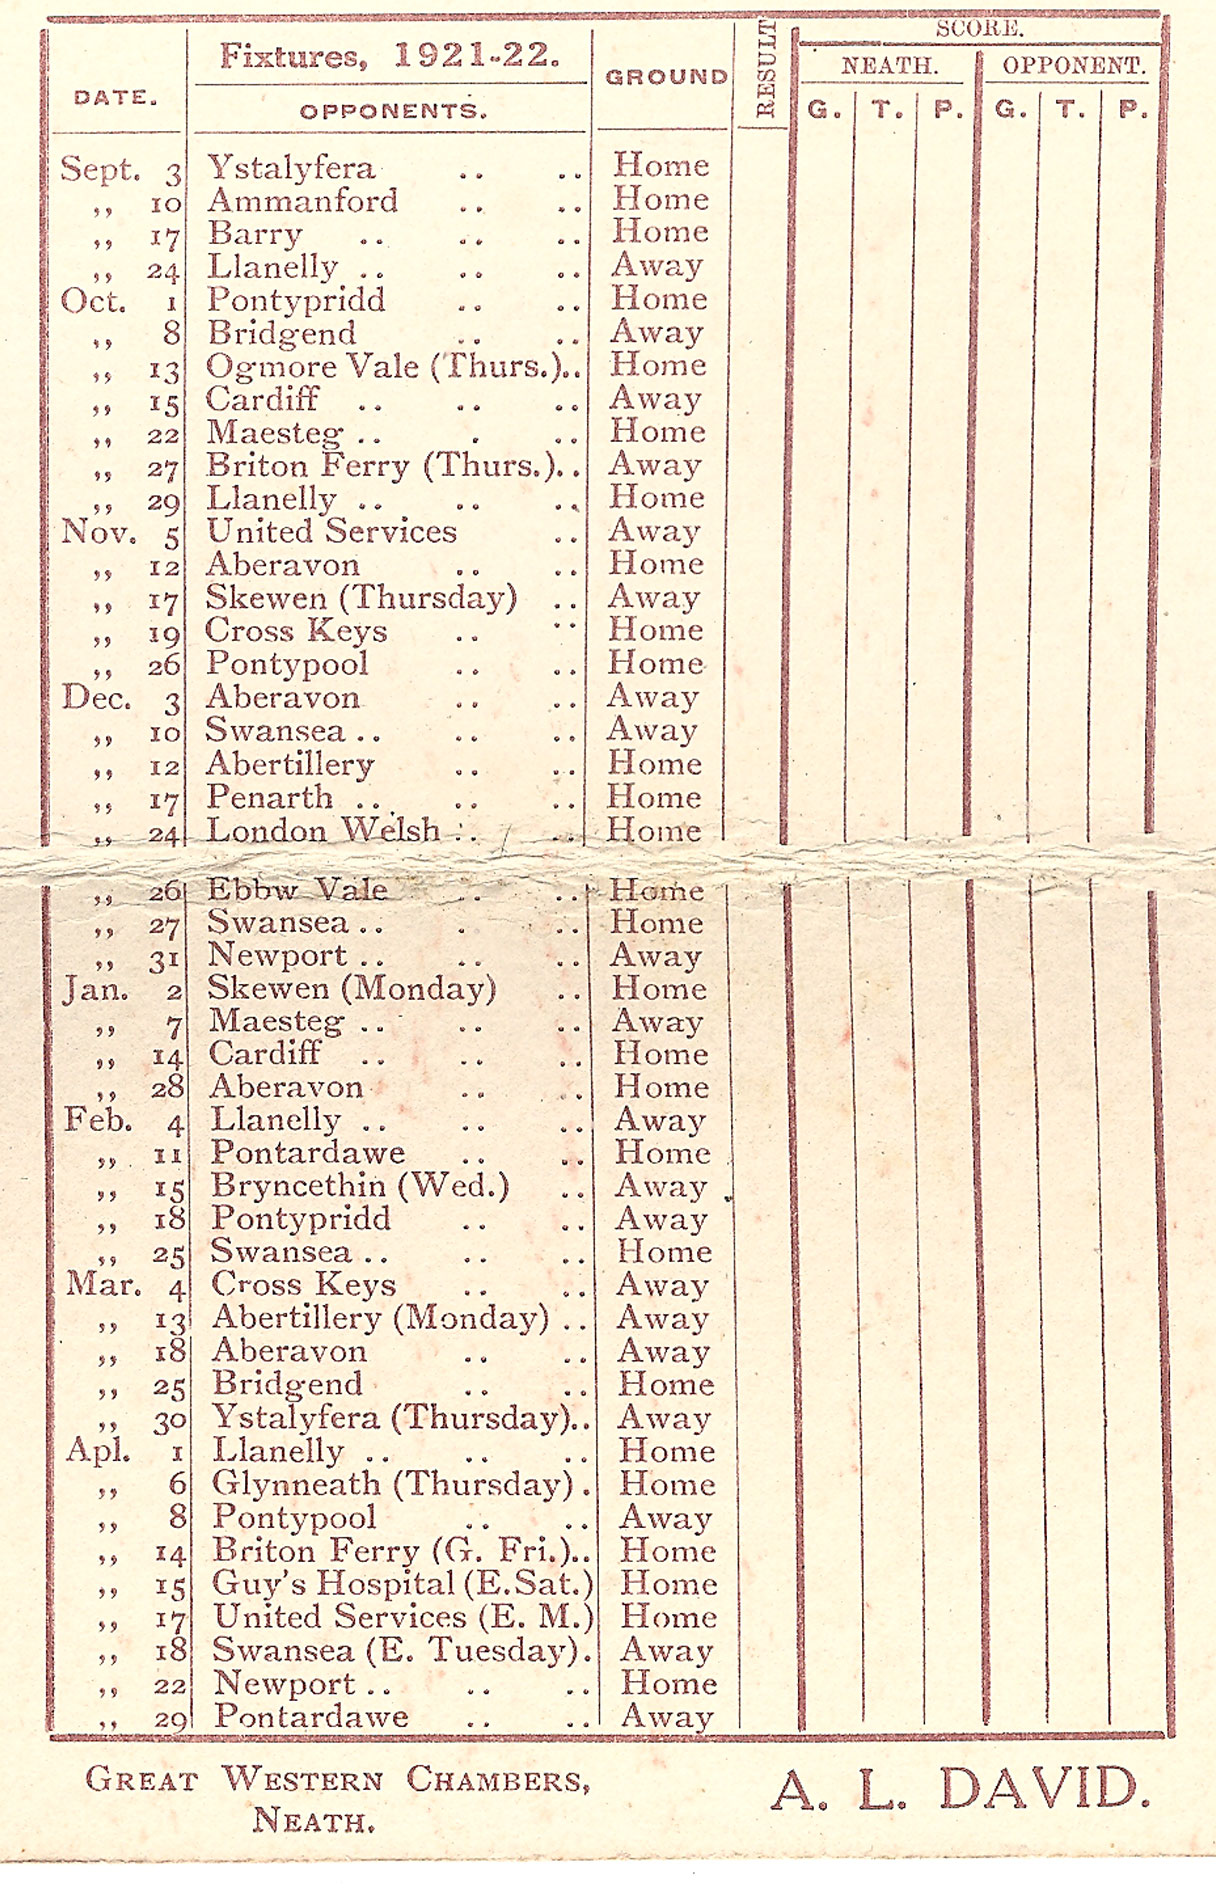 DATE. Fixtures, 1921-22. GROUND RESULT SCORE.
OPPONENTS. NEATH. OPPONENT.
G. T. P. G. T. P.
Sept. 3 Ystalyfera .. .. Home
„ 10 Ammanford .. .. Home
„ 17 Barry .. .. .. Home
„ 24 Llanelly .. .. .. Away
Oct. 1 Pontypridd .. .. Home
„ 8 Bridgend .. .. Away
„ 13 Ogmore Vale (Thurs.).. Home
„ 15 Cardiff .. .. .. Away
„ 22 Maesteg .. . .. Home
„ 27 Briton Ferry (Thurs.).. Away
„ 29 Llanelly .. .. .. Home
Nov. 5 United Services .. Away
„ 12 Aberavon .. .. Home
„ 17 Skewen (Thursday) .. Away
„ 19 Cross Keys .. .. Home
„ 26 Pontypool .. .. Home
Dec. 3 Aberavon .. .. Away
„ 10 Swansea .. .. .. Away
„ 12 Abertillery .. .. Home
„ 17 Penarth .. .. .. Home
„ 24 London Welsh .. .. Home
„ 26 Ebbw Vale .. .. Home
„ 27 Swansea .. . .. Home
„ 31 Newport .. .. .. Away
Jan. 2 Skewen (Monday) .. Home
„ 7 Maesteg .. .. .. Away
„ 14 Cardiff .. .. .. Home
„ 28 Aberavon .. .. Home
Feb. 4 Llanelly .. .. .. Away
„ 11 Pontardawe .. .. Home
„ 15 Bryncethin (Wed.) .. Away
„ 18 Pontypridd .. .. Away
„ 25 Swansea .. .. .. Home
Mar. 4 Cross Keys .. .. Away
„ 13 Abertillery (Monday) .. Away
„ 18 Aberavon .. .. Away
„ 25 Bridgend .. .. Home
„ 30 Ystalyfera (Thursday).. Away
Apl. 1 Llanelly .. .. .. Home
„ 6 Glynneath (Thursday) . Home
„ 8 Pontypool .. .. Away
„ 14 Briton Ferry (G. Fri.).. Home
„ 15 Guy's Hospital (E.Sat.) Home
„ 17 United Services (E. M.) Home
„ 18 Swansea (E. Tuesday). Away
„ 22 Newport .. .. .. Home
„ 29 Pontardawe .. .. Away
GREAT WESTERN CHAMBERS, A. L. DAVID.
NEATH.